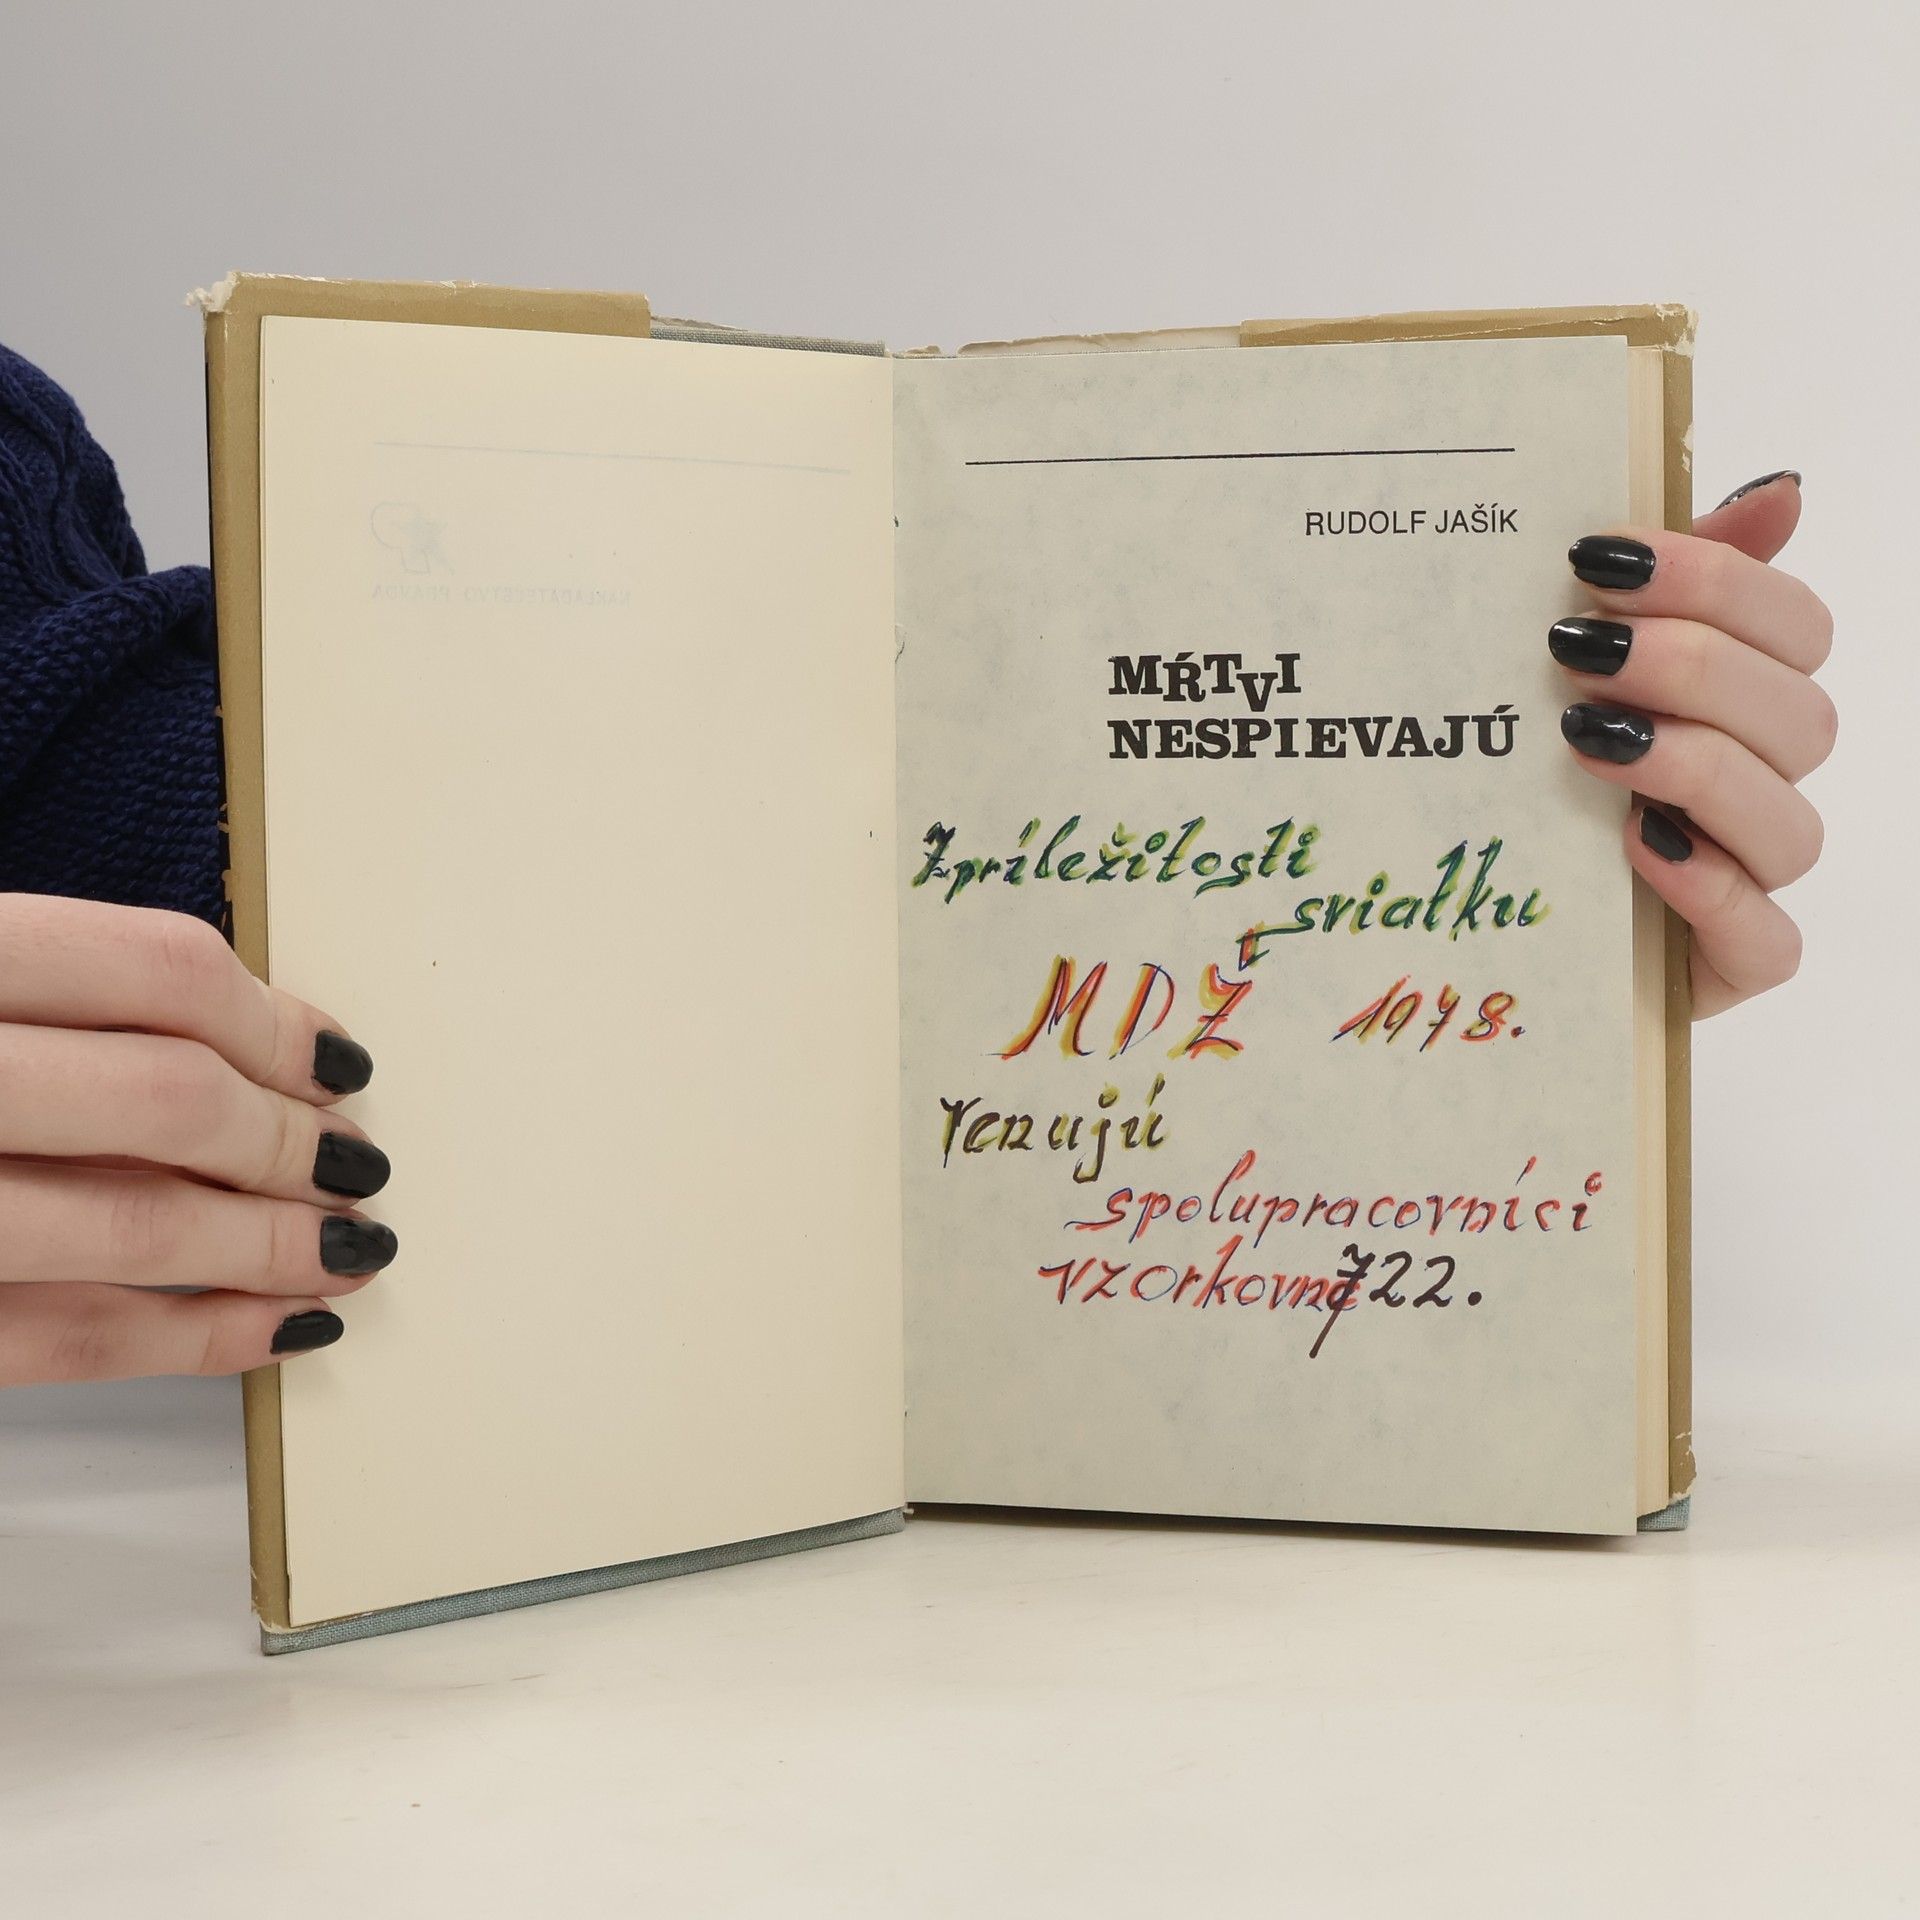 NAKLADATEĽSTVO PRAVDA
RUDOLF JAŠÍK
MŔTVI
NESPIEVAJÚ
Z príležitosti
sviatku
MDŽ 1978.
Venujú
spolupracovníci
vzorkovne 722.